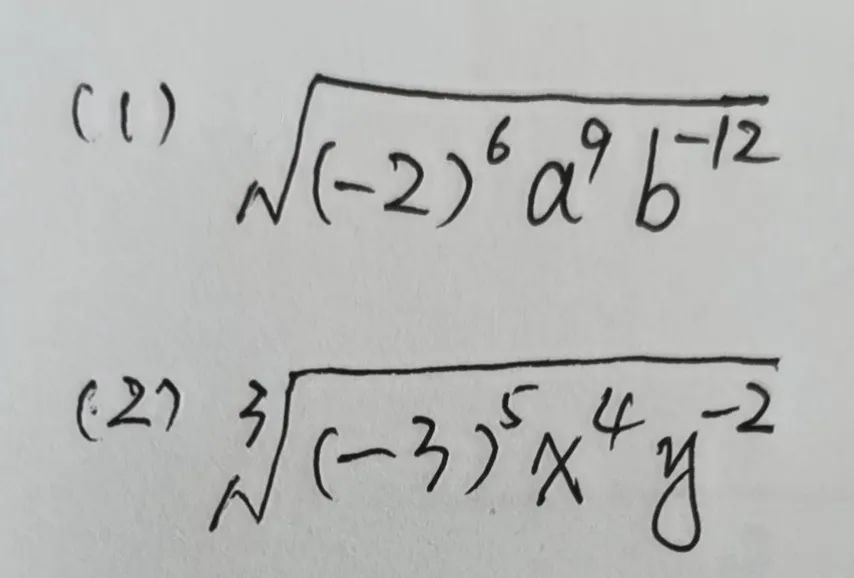 (1) √((-2)⁶a⁹b⁻¹²)
(2) ∛((-3)⁵x⁴y⁻²)